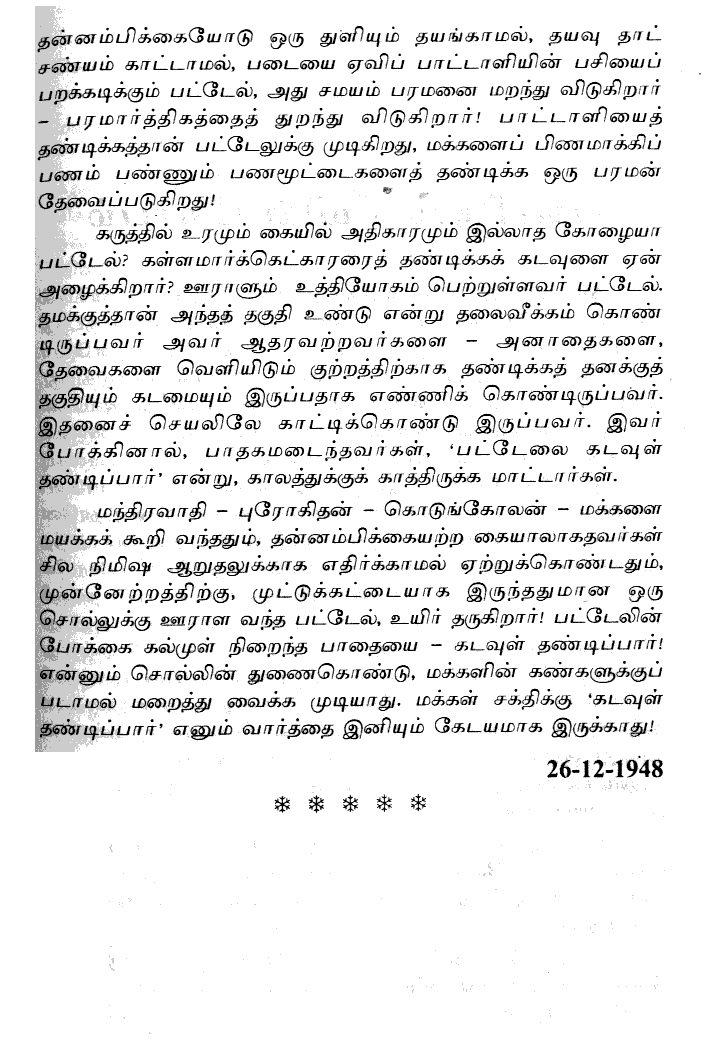 தன்னம்பிக்கையோடு ஒரு துளியும் தயங்காமல், தயவு தாட்
சண்யம் காட்டாமல், படையை ஏவிப் பாட்டாளியின் பசியைப்
பறக்கடிக்கும் பட்டேல், அது சமயம் பரமனை மறந்து விடுகிறார்
– பரமார்த்திகத்தைத் துறந்து விடுகிறார்! பாட்டாளியைத்
தண்டிக்கத்தான் பட்டேலுக்கு முடிகிறது, மக்களைப் பிணமாக்கிப்
பணம் பண்ணும் பணமூட்டைகளைத் தண்டிக்க ஒரு பரமன்
தேவைப்படுகிறது!
கருத்தில் உரமும் கையில் அதிகாரமும் இல்லாத கோழையா
பட்டேல்? கள்ளமார்க்கெட்காரரைத் தண்டிக்கக் கடவுளை ஏன்
அழைக்கிறார்? ஊராளும் உத்தியோகம் பெற்றுள்ளவர் பட்டேல்.
தமக்குத்தான் அந்தத் தகுதி உண்டு என்று தலைவீக்கம் கொண்
டிருப்பவர் அவர் ஆதரவற்றவர்களை – அனாதைகளை,
தேவைகளை வெளியிடும் குற்றத்திற்காக தண்டிக்கத் தனக்குத்
தகுதியும் கடமையும் இருப்பதாக எண்ணிக் கொண்டிருப்பவர்.
இதனைச் செயலிலே காட்டிக்கொண்டு இருப்பவர். இவர்
போக்கினால், பாதகமடைந்தவர்கள், ‘பட்டேலை கடவுள்
தண்டிப்பார்’ என்று, காலத்துக்குக் காத்திருக்க மாட்டார்கள்.
மந்திரவாதி – புரோகிதன் – கொடுங்கோலன் – மக்களை
மயக்கக் கூறி வந்ததும், தன்னம்பிக்கையற்ற கையாலாகதவர்கள்
சில நிமிஷ ஆறுதலுக்காக எதிர்க்காமல் ஏற்றுக்கொண்டதும்,
முன்னேற்றத்திற்கு, முட்டுக்கட்டையாக இருந்ததுமான ஒரு
சொல்லுக்கு ஊராள வந்த பட்டேல், உயிர் தருகிறார்! பட்டேலின்
போக்கை கல்முள் நிறைந்த பாதையை – கடவுள் தண்டிப்பார்!
என்னும் சொல்லின் துணைகொண்டு, மக்களின் கண்களுக்குப்
படாமல் மறைத்து வைக்க முடியாது. மக்கள் சக்திக்கு ‘கடவுள்
தண்டிப்பார்’ எனும் வார்த்தை இனியும் கேடயமாக இருக்காது!
26-12-1948